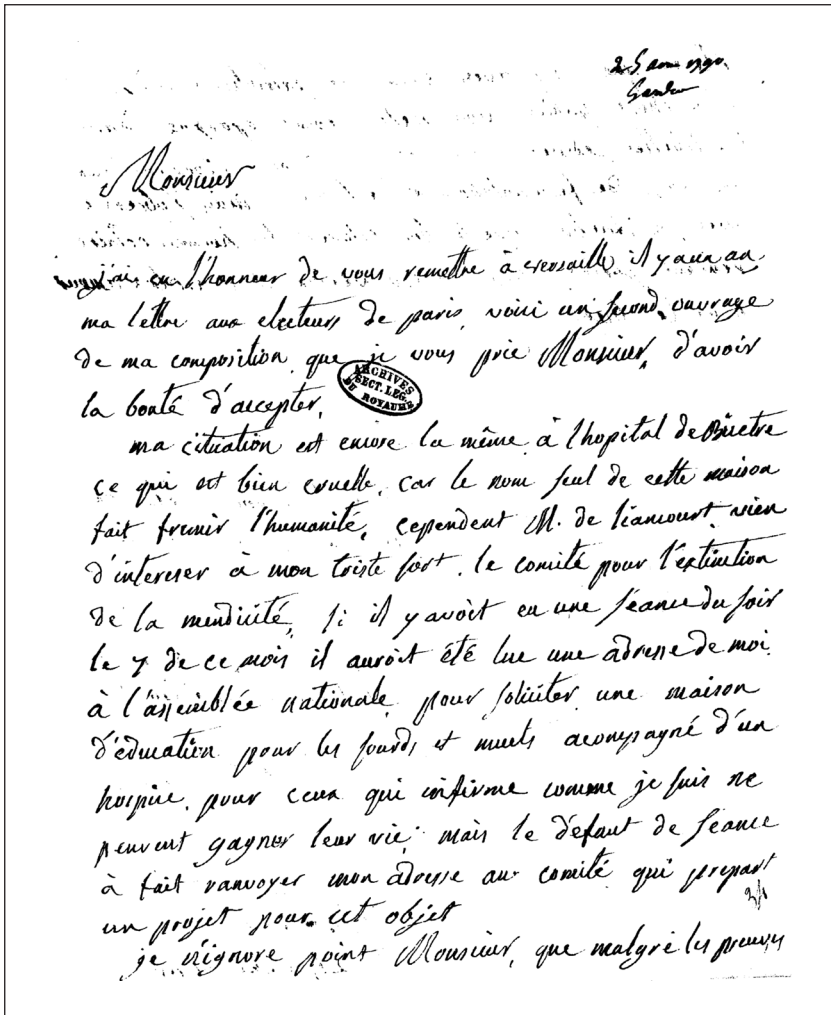 25 aou 1790
Monsieur
j'ai eu l'honneur de vous remettre à versaille il y a un an
ma lettre aux electeurs de paris, voici un second ouvrage
de ma composition que je vous prie Monsieur, d'avoir
la bonté d'accepter,
ARCHIVES
SECT. LEG.
DU ROYAUME
ma cituation est encore la même à l'hopital de Bicetre
ce qui est bien cruelle, car le nom seul de cette maison
fait fremir l'humanité, cependent M. de liancourt vien
d'intereser à mon triste sort. le comité pour l'extinction
de la mendicité, si il y avoit eu une séance du soir
le 7 de ce mois il auroit été lue une adresse de moi
à l'assemblée nationale pour soliciter une maison
d'éducation pour les sourds et muets acompagné d'un
hospice, pour ceux qui infirme comme je suis ne
peuvent gagner leur vie; mais le défaut de séance
à fait ranvoyer mon adresse au comité qui prepart
un projet pour cet objet
je n'ignore point Monsieur, que malgré les preuves